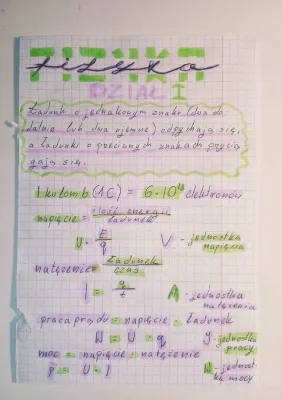 FIZYKA
fizyka
DZIAŁ I
Ładunki o jednakowym znaku (dwa do
datnie lub dwa ujemne) odpychają się,
a ładunki o przeciwnych znakach przycią
gają się.
1 kulomb (1C) = 6·10¹⁸ elektronów
napięcie = ilość energii / ładunek
U = E/q V - jednostka napięcia
natężenie = ładunek / czas
I = q/t A - jednostka natężenia
praca prądu = napięcie · ładunek
W = U · q J - jednostka pracy
moc = napięcie · natężenie
P = U · I W - jednost ka mocy